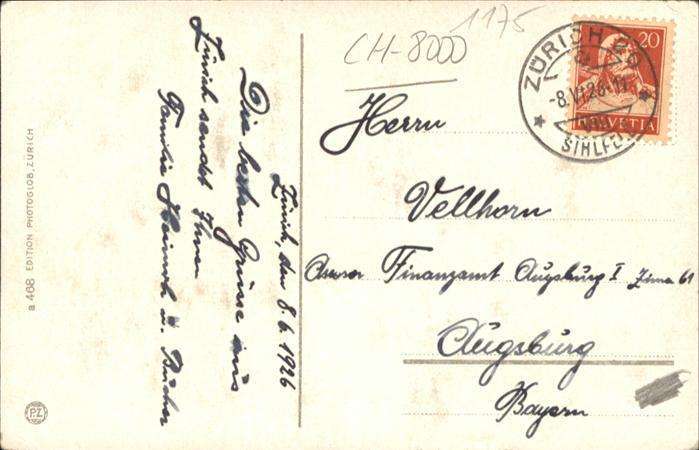 CH-8000
1175
20
HELVETIA
ZÜRICH
-8.VI.26.
SIHLFELD
Zürich, den 8.6.1926
Die besten Grüsse aus
Zürich sendet Ihnen
Familie Heinrich u. Bücher
Herrn
Vellhorn
Finanzamt Augsburg I
61
Augsburg
Bayern
a 468 EDITION PHOTOGLOB, ZÜRICH
P.Z.